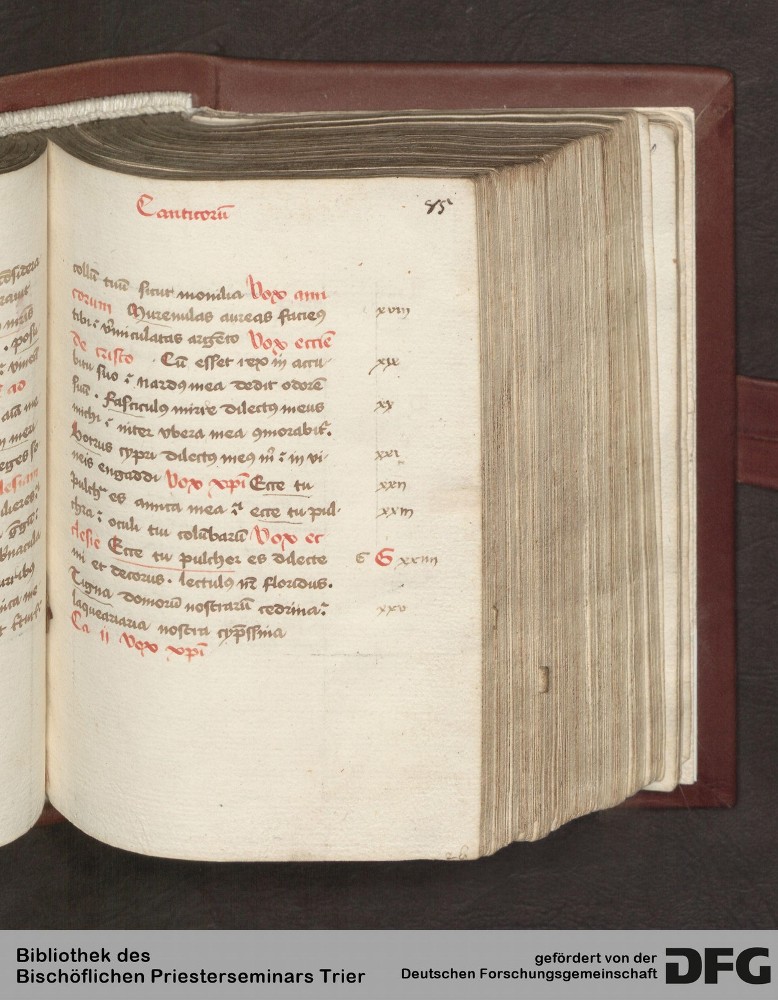 Canticorū 85
collū tuū sicut monilia Vox ami
corum Murenulas aureas faciemꝰ xviii
tibi : v̄miculatas argēto Vox ecclīe
de cristo Cū esset rex in accu xix
bitu suo : nardꝰ mea dedit odorē
suū . Fasciculꝰ mirre dilectꝰ meus xx
michi : inter vbera mea ꝯmorabit̄.
Botrus cypri dilectꝰ meꝰ m̄ : in vi xxi
neis engaddi Vox xp̄i Ecce tu xxii
pulchͣ es amica mea : ecce tu pul xxiii
chra : oculi tui colūbarū Vox ec
clesie Ecce tu pulcher es dilecte G G xxiiii
mi et decorus . lectulꝰ nr̄ floridus.
Tigna domorū nostrarū cedrina : xxv
laqueariaria nostra cyp̄ssina
Ca ii Vox xp̄i
considera
26
Bibliothek des
Bischöflichen Priesterseminars Trier
gefördert von der
Deutschen Forschungsgemeinschaft DFG